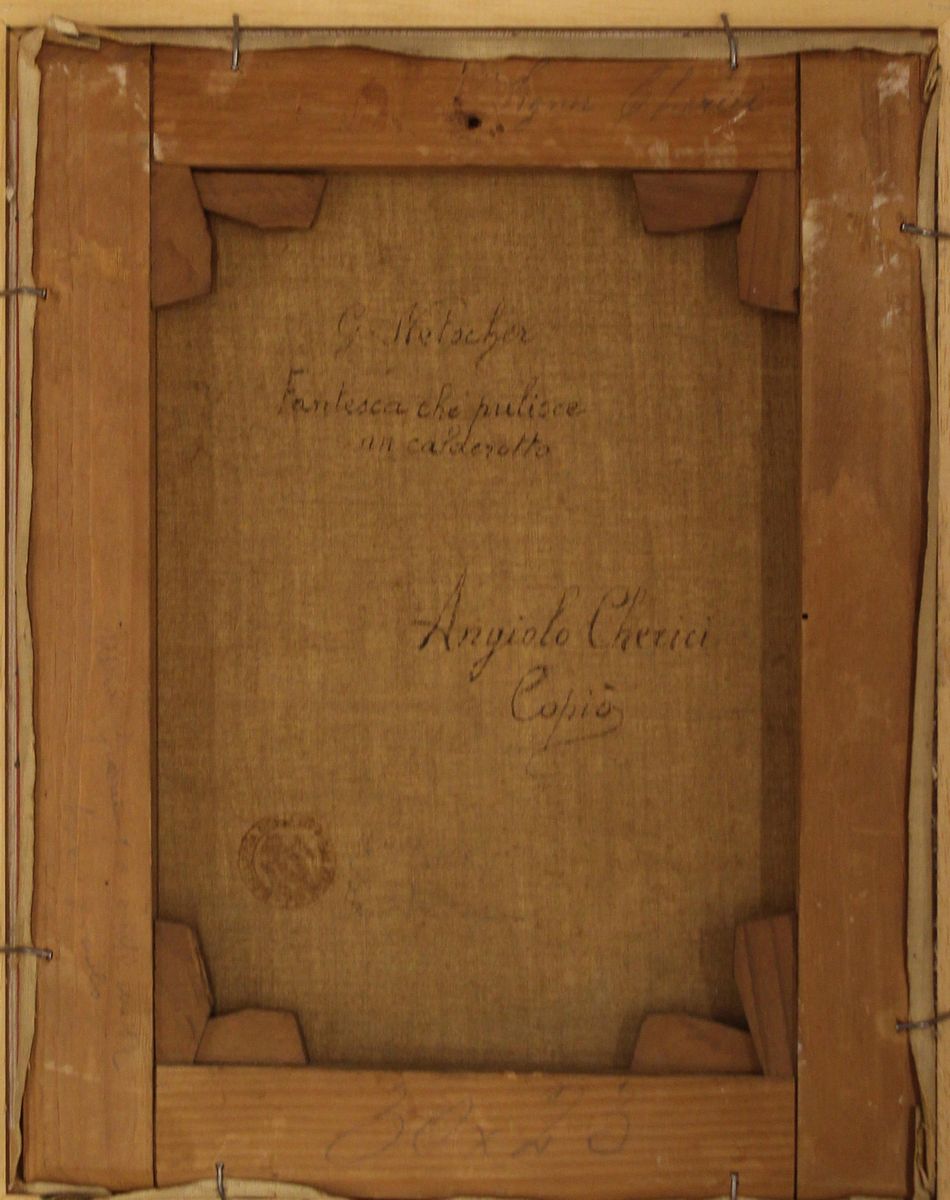 Signor Cherici
G Netscher
Fantesca che pulisce
un calderotto
Angiolo Cherici
Copiò
30x23